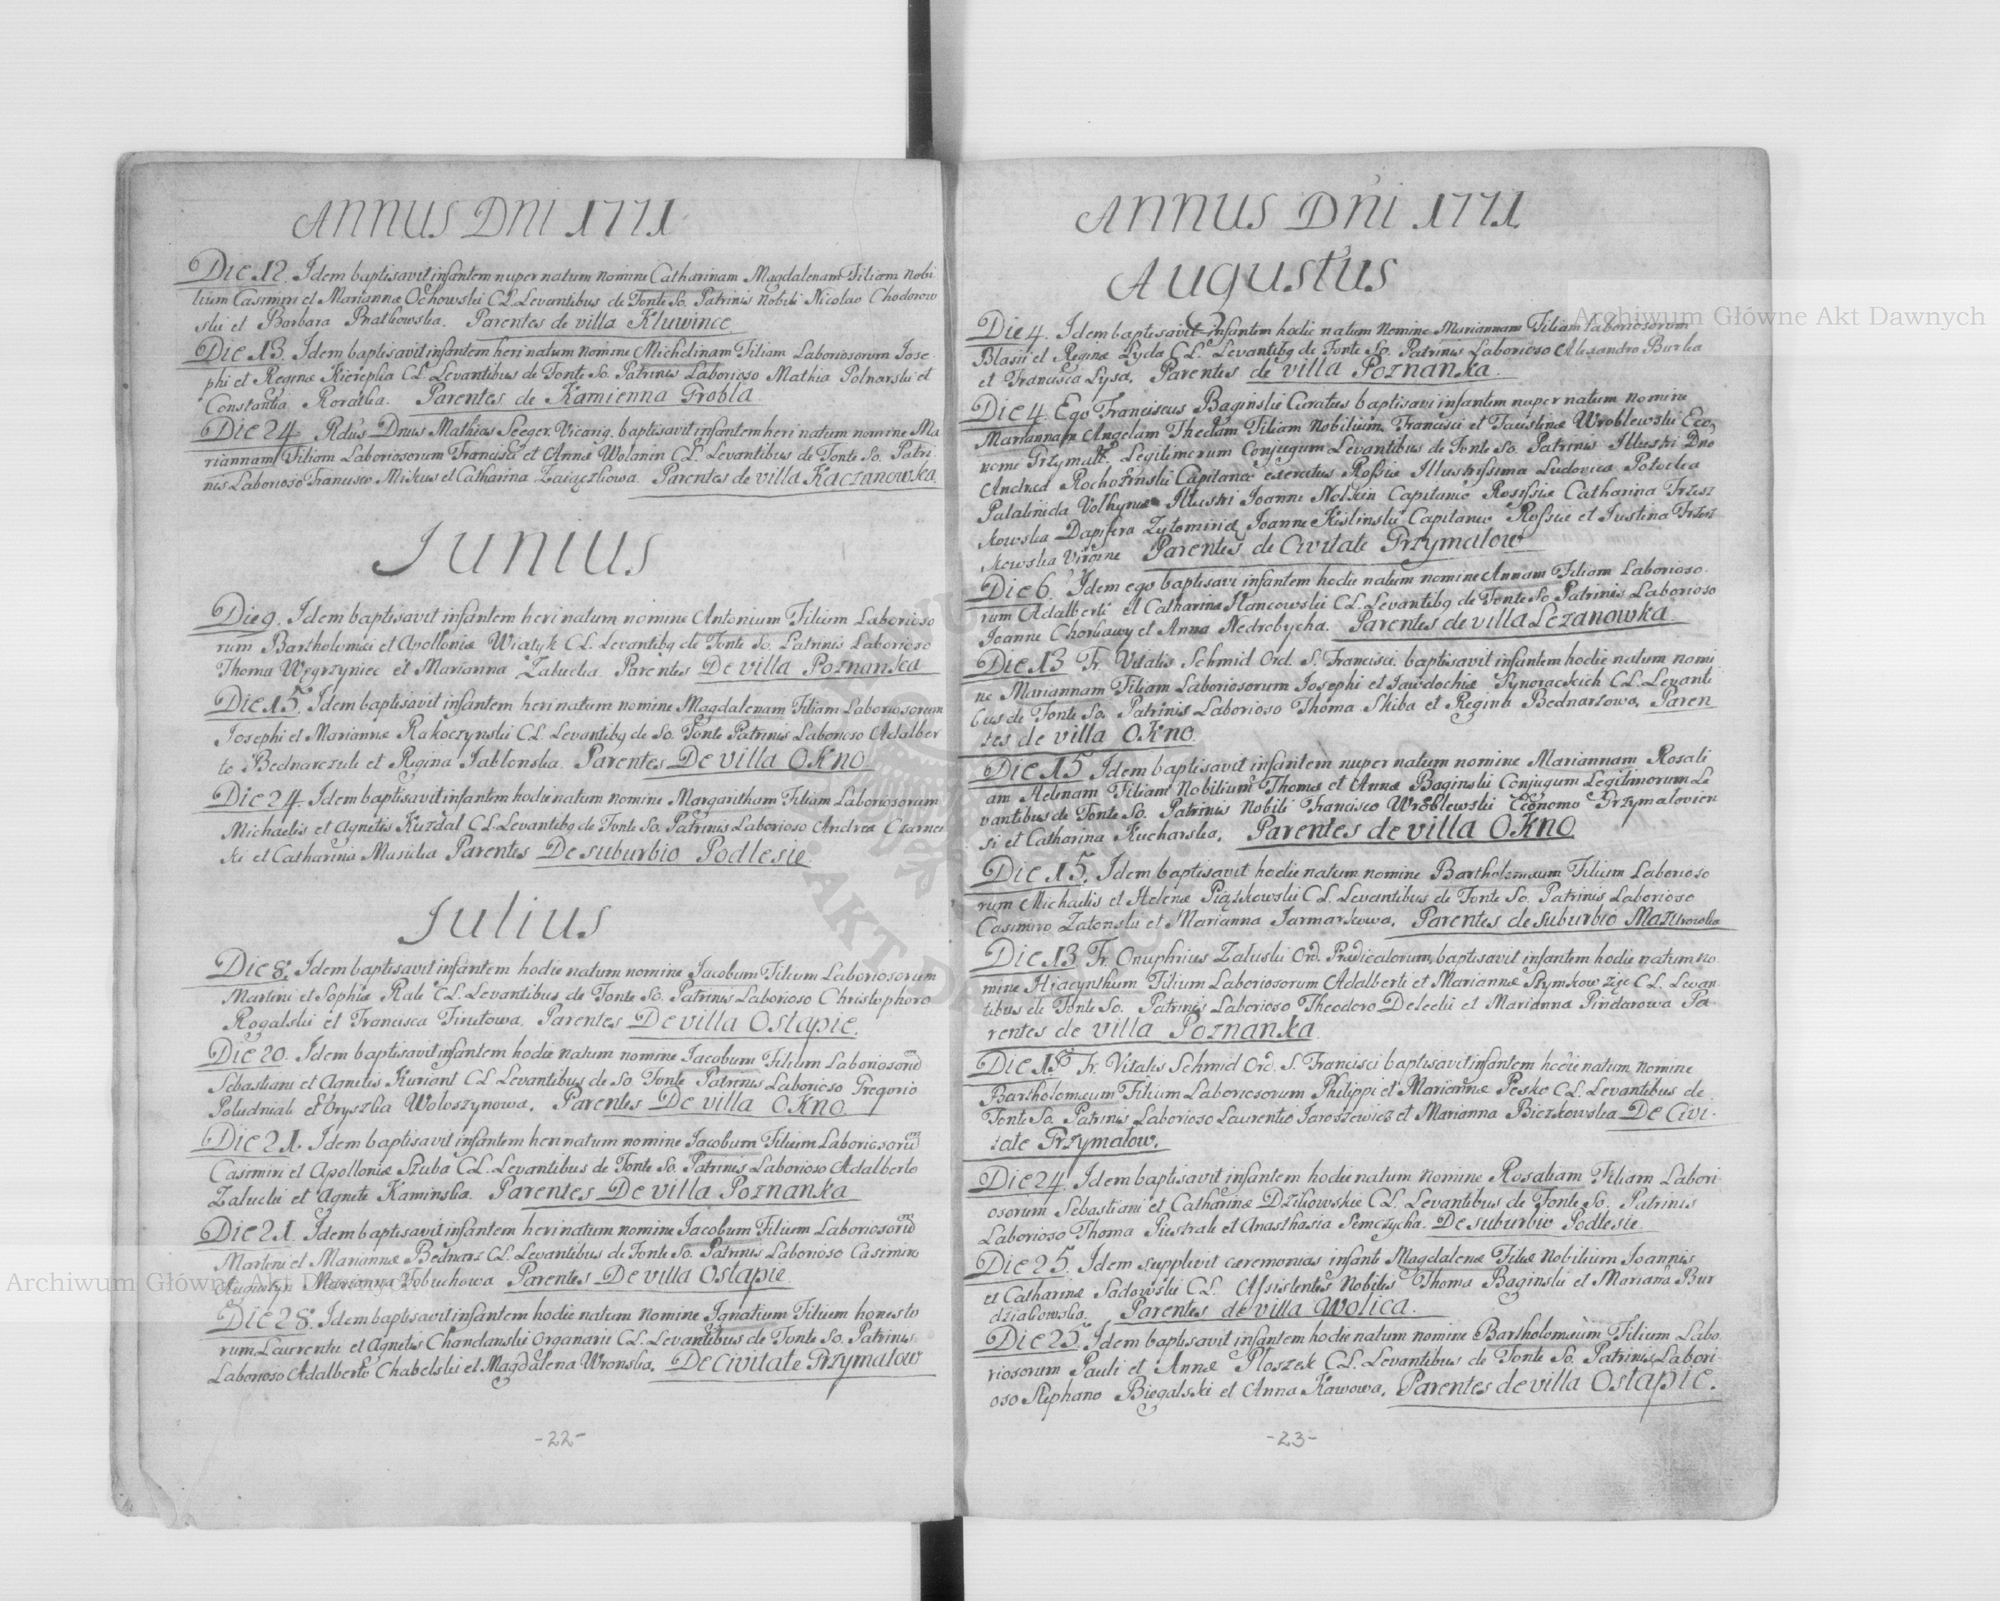 ANNUS DNI 1771
Die 12. Idem baptisavit infantem nuper natum nomine Catharinam Magdalenam Filiam Nobi
lium Casimiri et Mariannæ Ochowskii CL. Levantibus de Fonte So. Patrinis Nobili Nicolao Chodorow
ski et Barbara Pratkowska. Parentes de villa Kluwince
Die 13. Idem baptisavit infantem heri natum nomine Michelinam Filiam Laboriosorum Jose
phi et Reginæ Kierepka CL. Levantibus de Fonte So. Patrinis Laborioso Mathia Polnarski et
Constantia Roratka. Parentes de Kamienna Grobla
Die 24 Rdus Dnus Mathias Seeger Vicariq. baptisavit infantem heri natum nomine Ma
riannam Filiam Laboriosorum Francisci et Annæ Wolanin CL. Levantibus de Fonte So. Patri
nis Laborioso Francisco Mikus et Catharina Zaiączkowa. Parentes de villa Kaczanowka
Junius
Die 9. Idem baptisavit infantem heri natum nomine Antonium Filium Laborioso
rum Bartholomæi et Apolloniæ Wiatyk CL. Levantibq de Fonte So. Patrinis Laborioso
Thoma Węgrzyniec et Marianna Zalucka. Parentes De villa Poznanka
Die 15. Idem baptisavit infantem heri natum nomine Magdalenam Filiam Laboriosorum
Josephi et Mariannæ Rakoczynskii CL. Levantibq de So. Fonte Patrinis Laborioso Adalber
to Bednarczuk et Regina Jablonska. Parentes De villa OKNO
Die 24. Idem baptisavit infantem hodie natum nomine Margaritham Filiam Laboriosorum
Michaelis et Agnetis Kuzdal CL. Levantibq de Fonte So. Patrinis Laborioso Andrea Czarnec
ki et Catharina Masicka Parentes De suburbio Podlesie
Julius
Die 8. Idem baptisavit infantem hodie natum nomine Jacobum Filium Laboriosorum
Martini et Sophiæ Rak CL. Levantibus de Fonte So. Patrinis Laborioso Christophoro
Rogalski et Francisca Tirutowa. Parentes De villa Ostapie.
Die 20. Idem baptisavit infantem hodie natum nomine Jacobum Filium Laboriosorũ
Sebastiani et Agnetis Kuriant CL. Levantibus de So. Fonte Patrinis Laborioso Gregorio
Poludniak et Oryszka Woloszynowa. Parentes De villa OKNO
Die 21. Idem baptisavit infantem heri natum nomine Jacobum Filium Laboriosorũ
Casimiri et Apolloniæ Szuba CL. Levantibus de Fonte So. Patrinis Laborioso Adalberto
Zalucki et Agnete Kaminska. Parentes De villa Poznanka
Die 21. Idem baptisavit infantem heri natum nomine Jacobum Filium Laboriosorũ
Martini et Mariannæ Bednarz CL. Levantibus de Fonte So. Patrinis Laborioso Casimiro
Augustyn Marianna Tobuchowa Parentes De villa Ostapie
Die 28. Idem baptisavit infantem hodie natum nomine Ignatium Filium honesto
rum Laurentii et Agnetis Chandanskii Organarii CL. Levantibus de Fonte So. Patrinis
Laborioso Adalberto Chabelski et Magdalena Wronska. De Civitate Grzymalow
-22-
ANNUS DNI 1771
Augustus
Die 4. Idem baptisavit infantem hodie natum nomine Mariannam Filiam Laboriosorum
Blasii et Reginæ Lyda CL. Levantibq de Fonte So. Patrinis Laborioso Alexandro Burka
et Francisca Lysa. Parentes de villa Poznanka
Die 4 Ego Franciscus Baginskii Curatus baptisavi infantem nuper natum nomine
Mariannam Angelam Theclam Filiam Nobilium Francisci et Faustinæ Wroblewskii Eco
nome Grzymalt. Legitimorum Conjugum Levantibus de Fonte So. Patrinis Illustri Dno
Andrea Capitana exercitus Rossiæ Illustrissima Ludovica Potocka
Palatinida Volhyniæ Illustri Joanne Nolkin Capitaneo Rossiæ Catharina Trzesz
kowska Dapifera Zytomiriæ Joanne Kislinskii Capitaneo Rossiæ et Justina Trzesz
kowska Virgine Parentes de Civitate Grzymalow
Die 6. Idem ego baptisavi infantem hodie natum nomine Annam Filiam Laborioso
rum Adalberti et Catharinæ Hancowskii CL. Levantibq de Fonte So. Patrinis Laborioso
Joanne Chorkawy et Anna Nedrobycha. Parentes de villa Lezanowka
Die 13 Fr. Vitalis Schmid Ord. S. Francisci. baptisavit infantem hodie natum nomi
ne Mariannam Filiam Laboriosorum Josephi et Jawdochiæ Synorackich CL. Levanti
bus de Fonte So. Patrinis Laborioso Thoma Skiba et Regina Bednarzowa, Paren
tes de villa OKNO.
Die 15 Idem baptisavit infantem nuper natum nomine Mariannam Rosali
am Helenam Filiam Nobilium Thomæ et Annæ Baginskii Conjugum Legitimorum Le
vantibus de Fonte So. Patrinis Nobili Francisco Wroblewski Economo Grzymalovien
si et Catharina Kucharska. Parentes de villa OKNO
Die 15. Idem baptisavit hodie natum nomine Bartholomæum Filium Laborioso
rum Michaelis et Helenæ Piątkowskii CL. Levantibus de Fonte So. Patrinis Laborioso
Casimiro Zatonski et Marianna Jarmarkowa. Parentes de Suburbio Mazurowka
Die 13 Fr. Onuphrius Zaluski Ord. Prædicatorum, baptisavit infantem hodie natum no
mine Hiacynthum Filium Laboriosorum Adalberti et Mariannæ CL. Levan
tibus de Fonte So. Patrinis Laborioso Theodoro Delecki et Marianna Pindarowa Pa
rentes de villa Poznanka
Die 18 Fr. Vitalis Schmid Ord. S. Francisci baptisavit infantem hodie natum nomine
Bartholomæum Filium Laboriosorum Philippi et Mariannæ Pesko CL. Levantibus de
Fonte So. Patrinis Laborioso Laurentio Jaroszewicz et Marianna Biczkowska De Civi-
tate Grzymalow.
Die 24. Idem baptisavit infantem hodie natum nomine Rosaliam Filiam Labori
osorum Sebastiani et Catharinæ Dzikowskie CL. Levantibus de Fonte So. Patrinis
Laborioso Thoma Piestrak et Anasthasia Semczycha. De suburbio Podlesie.
Die 25. Idem supplivit cæremonias infanti Magdalenæ Filiæ Nobilium Joannis
et Catharinæ Sadowskii CL. Assistentes Nobiles Thoma Baginski et Mariana Bur
dziakowska. Parentes de villa Wolica.
Die 25. Idem baptisavit infantem hodie natum nomine Bartholomæum Filium Labo
riosorum Pauli et Annæ Ploszek CL. Levantibus de Fonte So. Patrinis Labori
oso Stephano Biegalski et Anna Kawowa. Parentes de villa Ostapie.
-23-
Archiwum Główne Akt Dawnych
Archiwum Główne Akt Dawnych